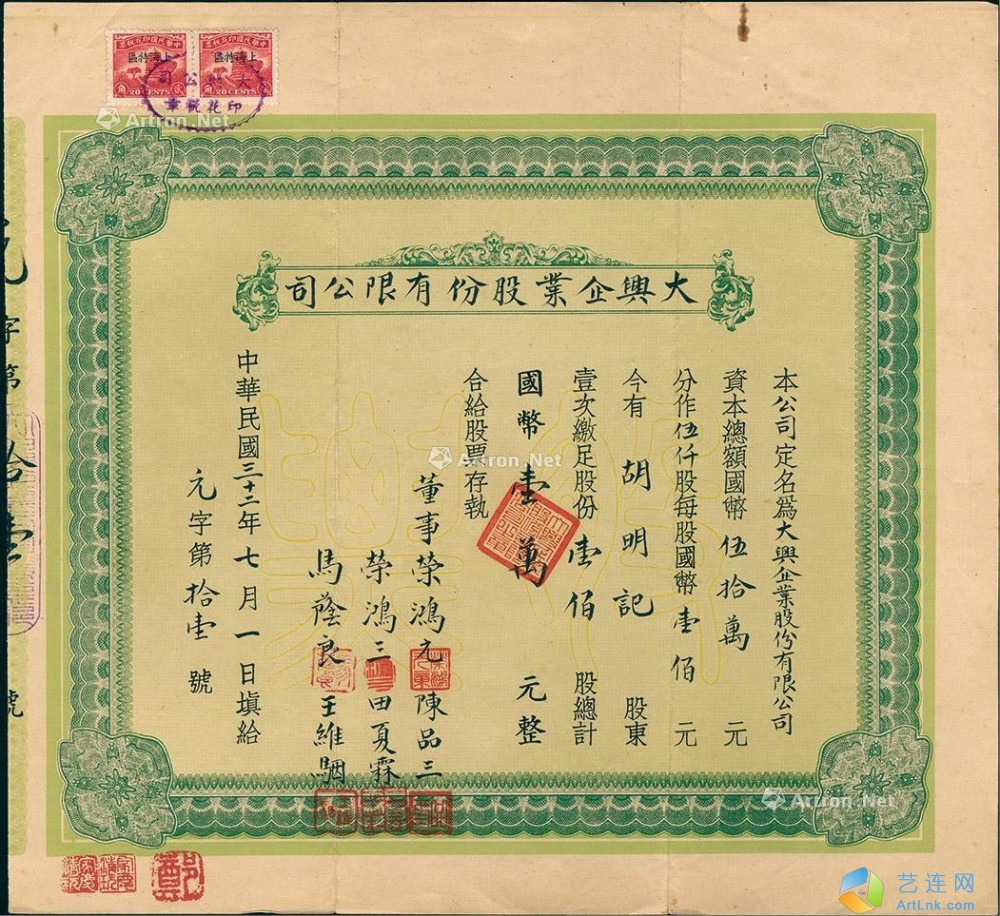 中華民國印花稅票
上海特區
20 CENTS
中華民國印花稅票
上海特區
20 CENTS
公司
印花稅章
大興企業股份有限公司
本公司定名為大興企業股份有限公司
資本總額國幣伍拾萬元
分作伍仟股每股國幣壹佰元
今有胡明記股東
壹次繳足股份壹佰股總計
國幣壹萬元整
合給股票存執
董事榮鴻元 陳品三
榮鴻三 田夏霖
馬蔭良 王維駰
中華民國三十二年七月一日填給
元字第拾壹號
字第拾壹號
Artron.Net
Artron.Net
Artron.Net
艺连网
ArtLnk.com